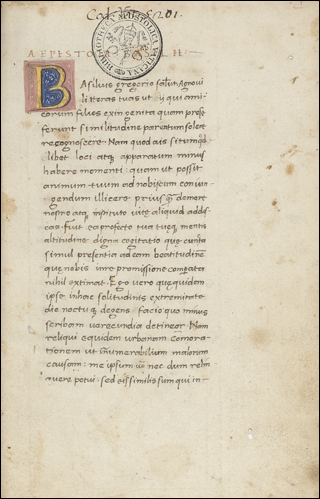 BIBLIOTHECA APOSTOLICA VATICANA
Basilius gregorio salut. Agnovi
litteras tuas ut ij qui ami
corum filios ex ingenita quam prese
ferunt similitudine parentum solent
recognoscere. Nam quod ais situmqʒ
libet loci atqʒ apparatum minus
habere momenti: quam ut possit
animum tuum ad nobiscum convi
gendum illicere. prius de more
nostro atqʒ instituto vitę aliquid
altitudine digna cogitatio quę cuncta
simul presentia ad eam beatitudinē
que nobis in re promissione
nihil extimat. Ego vero quę quidem
ipse in hac solitudinis extremitate
die noctuqʒ degens facio quo minus
scribam verecundia detineor. Nam
reliqui equidem urbanam commora
tionem ut innumerabilium malorum
causam: me ipsum v̄o nec dum relin
quere potui. sed assimilis sum qui in